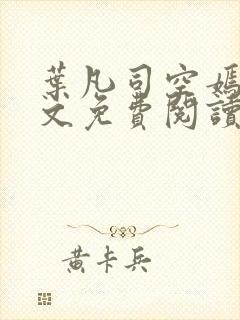 葉凡司空嫣
文免費閱讀
黃卡兵